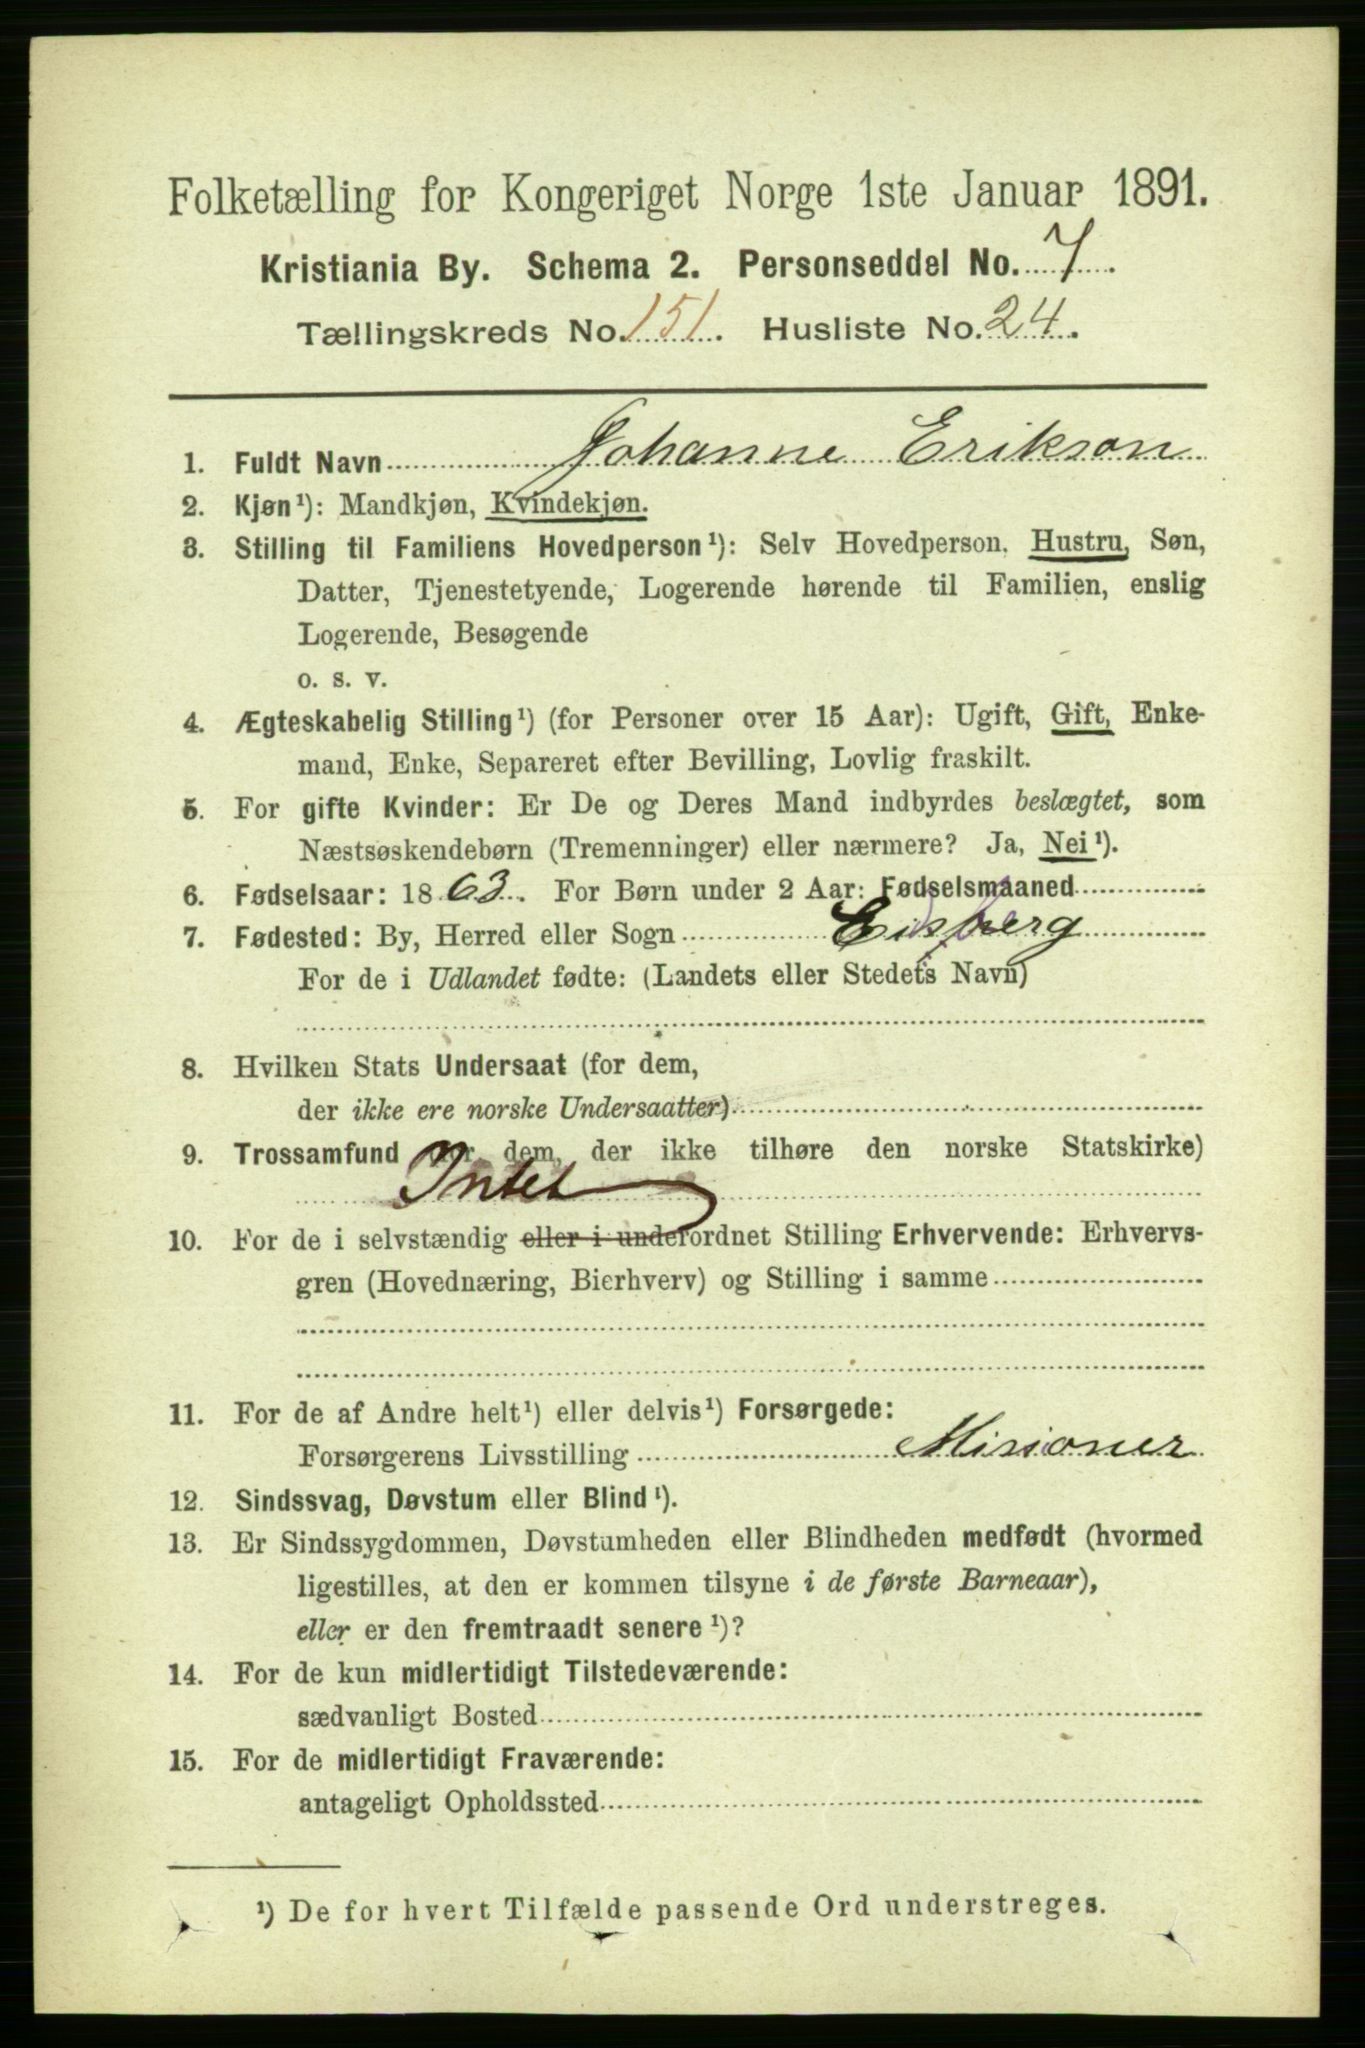 Folketælling for Kongeriget Norge 1ste Januar 1891.
Kristiania By. Schema 2. Personseddel No. 7.
Tællingskreds No. 151. Husliste No. 24.
1. Fuldt Navn Johanne Erikson
2. Kjøn¹): Mandkjøn, Kvindekjøn.
3. Stilling til Familiens Hovedperson¹): Selv Hovedperson, Hustru, Søn,
Datter, Tjenestetyende, Logerende hørende til Familien, enslig
Logerende, Besøgende
o. s. v.
4. Ægteskabelig Stilling¹) (for Personer over 15 Aar): Ugift, Gift, Enke-
mand, Enke, Separeret efter Bevilling, Lovlig fraskilt.
5. For gifte Kvinder: Er De og Deres Mand indbyrdes beslægtet, som
Næstsøskendebørn (Tremenninger) eller nærmere? Ja, Nei¹).
6. Fødselsaar: 1863. For Børn under 2 Aar: Fødselsmaaned
7. Fødested: By, Herred eller Sogn Eidsberg
For de i Udlandet fødte: (Landets eller Stedets Navn)
8. Hvilken Stats Undersaat (for dem,
der ikke ere norske Undersaatter)
9. Trossamfund (for dem, der ikke tilhøre den norske Statskirke)
Intet
10. For de i selvstændig eller i underordnet Stilling Erhvervende: Erhvervs-
gren (Hovednæring, Bierhverv) og Stilling i samme
11. For de af Andre helt¹) eller delvis¹) Forsørgede:
Forsørgerens Livsstilling Misioner
12. Sindssvag, Døvstum eller Blind¹).
13. Er Sindssygdommen, Døvstumheden eller Blindheden medfødt (hvormed
ligestilles, at den er kommen tilsyne i de første Barneaar),
eller er den fremtraadt senere¹)?
14. For de kun midlertidigt Tilstedeværende:
sædvanligt Bosted
15. For de midlertidigt Fraværende:
antageligt Opholdssted
¹) De for hvert Tilfælde passende Ord understreges.